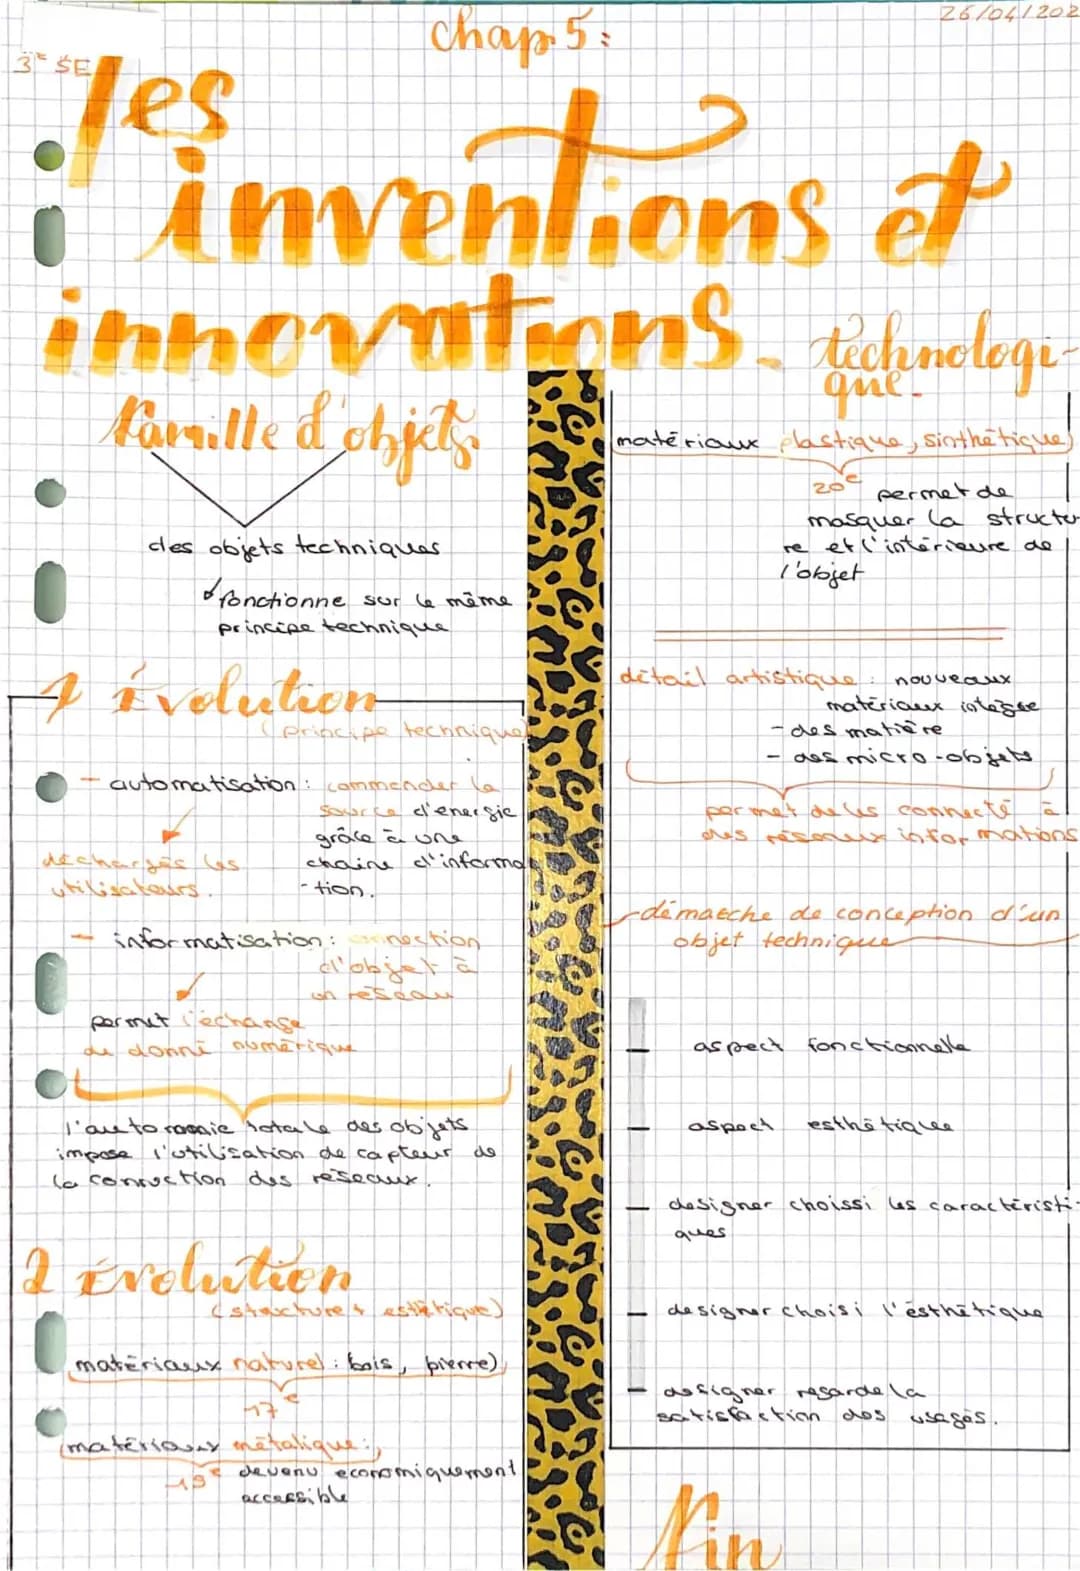 26/04/202
chap 5:
3e SE
les
inventions et
innovations.
technologi-
que.
famille d'objets.
des objets techniques
fonctionne sur le même
principe technique
1 Évolution
(principe technique)
- automatisation: commander la
source d'energie
grâce à une
chaine d'informa
-tion.
déchargés les
utilisateurs.
- informatisation: connection
d'objet à
un reseau
permet l'échange
de donné numérique
l'autonomie totale des objets
impose l'utilisation de capteur de
la connection des reseaux.
2 Évolution
(structure + esthétique)
matériaux naturel: bois, pierre)
17e
matériaux métalique:
19e devenu economiquement
accessible
matériaux plastique, sinthétique)
20e
permet de
masquer la structu-
re et l'intérieure de
l'objet
détail artistique: nouveaux
matériaux
- des matière
- des micro-objets
permet de les connecté à
des réseaux informations
démarche de conception d'un
objet technique
aspect fonctionnelle
aspect esthétique
designer choissi les caractéristi-
ques
designer choisi l'ésthétique
designer regarde la
satisfaction des usagés.
Fin